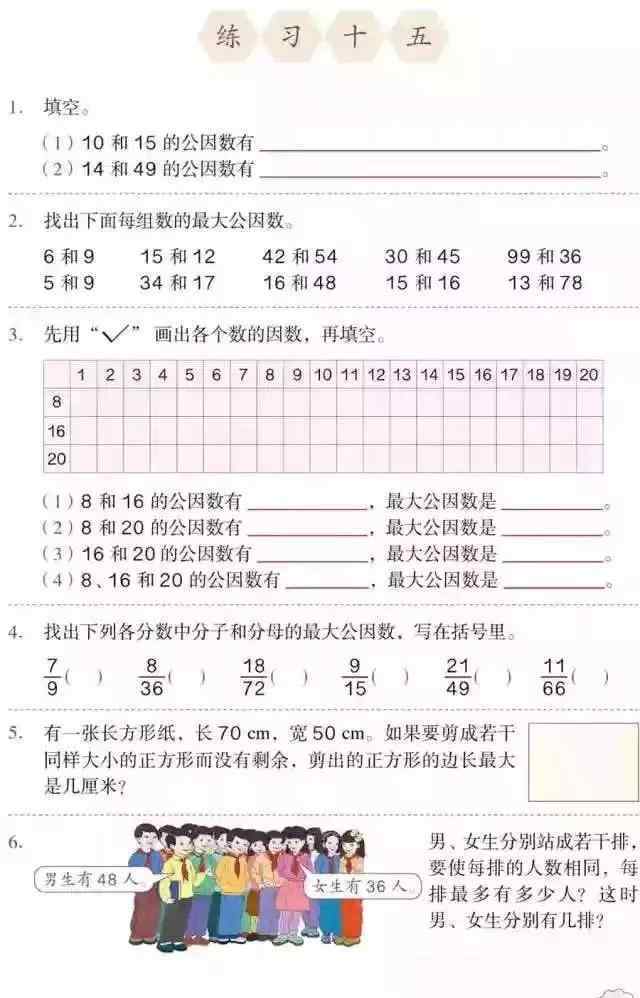 练习十五
1. 填空。
（1）10 和 15 的公因数有 ________。
（2）14 和 49 的公因数有 ________。
2. 找出下面每组数的最大公因数。
6 和 9 15 和 12 42 和 54 30 和 45 99 和 36
5 和 9 34 和 17 16 和 48 15 和 16 13 和 78
3. 先用“✓”画出各个数的因数，再填空。
1 2 3 4 5 6 7 8 9 10 11 12 13 14 15 16 17 18 19 20
8
16
20
（1）8 和 16 的公因数有 ________，最大公因数是 ________。
（2）8 和 20 的公因数有 ________，最大公因数是 ________。
（3）16 和 20 的公因数有 ________，最大公因数是 ________。
（4）8、16 和 20 的公因数有 ________，最大公因数是 ________。
4. 找出下列各分数中分子和分母的最大公因数，写在括号里。
7/9( ) 8/36( ) 18/72( ) 9/15( ) 21/49( ) 11/66( )
5. 有一张长方形纸，长 70 cm，宽 50 cm。如果要剪成若干
同样大小的正方形而没有剩余，剪出的正方形的边长最大
是几厘米？
6.
男生有 48 人。
女生有 36 人。
男、女生分别站成若干排，
要使每排的人数相同，每
排最多有多少人？这时
男、女生分别有几排？